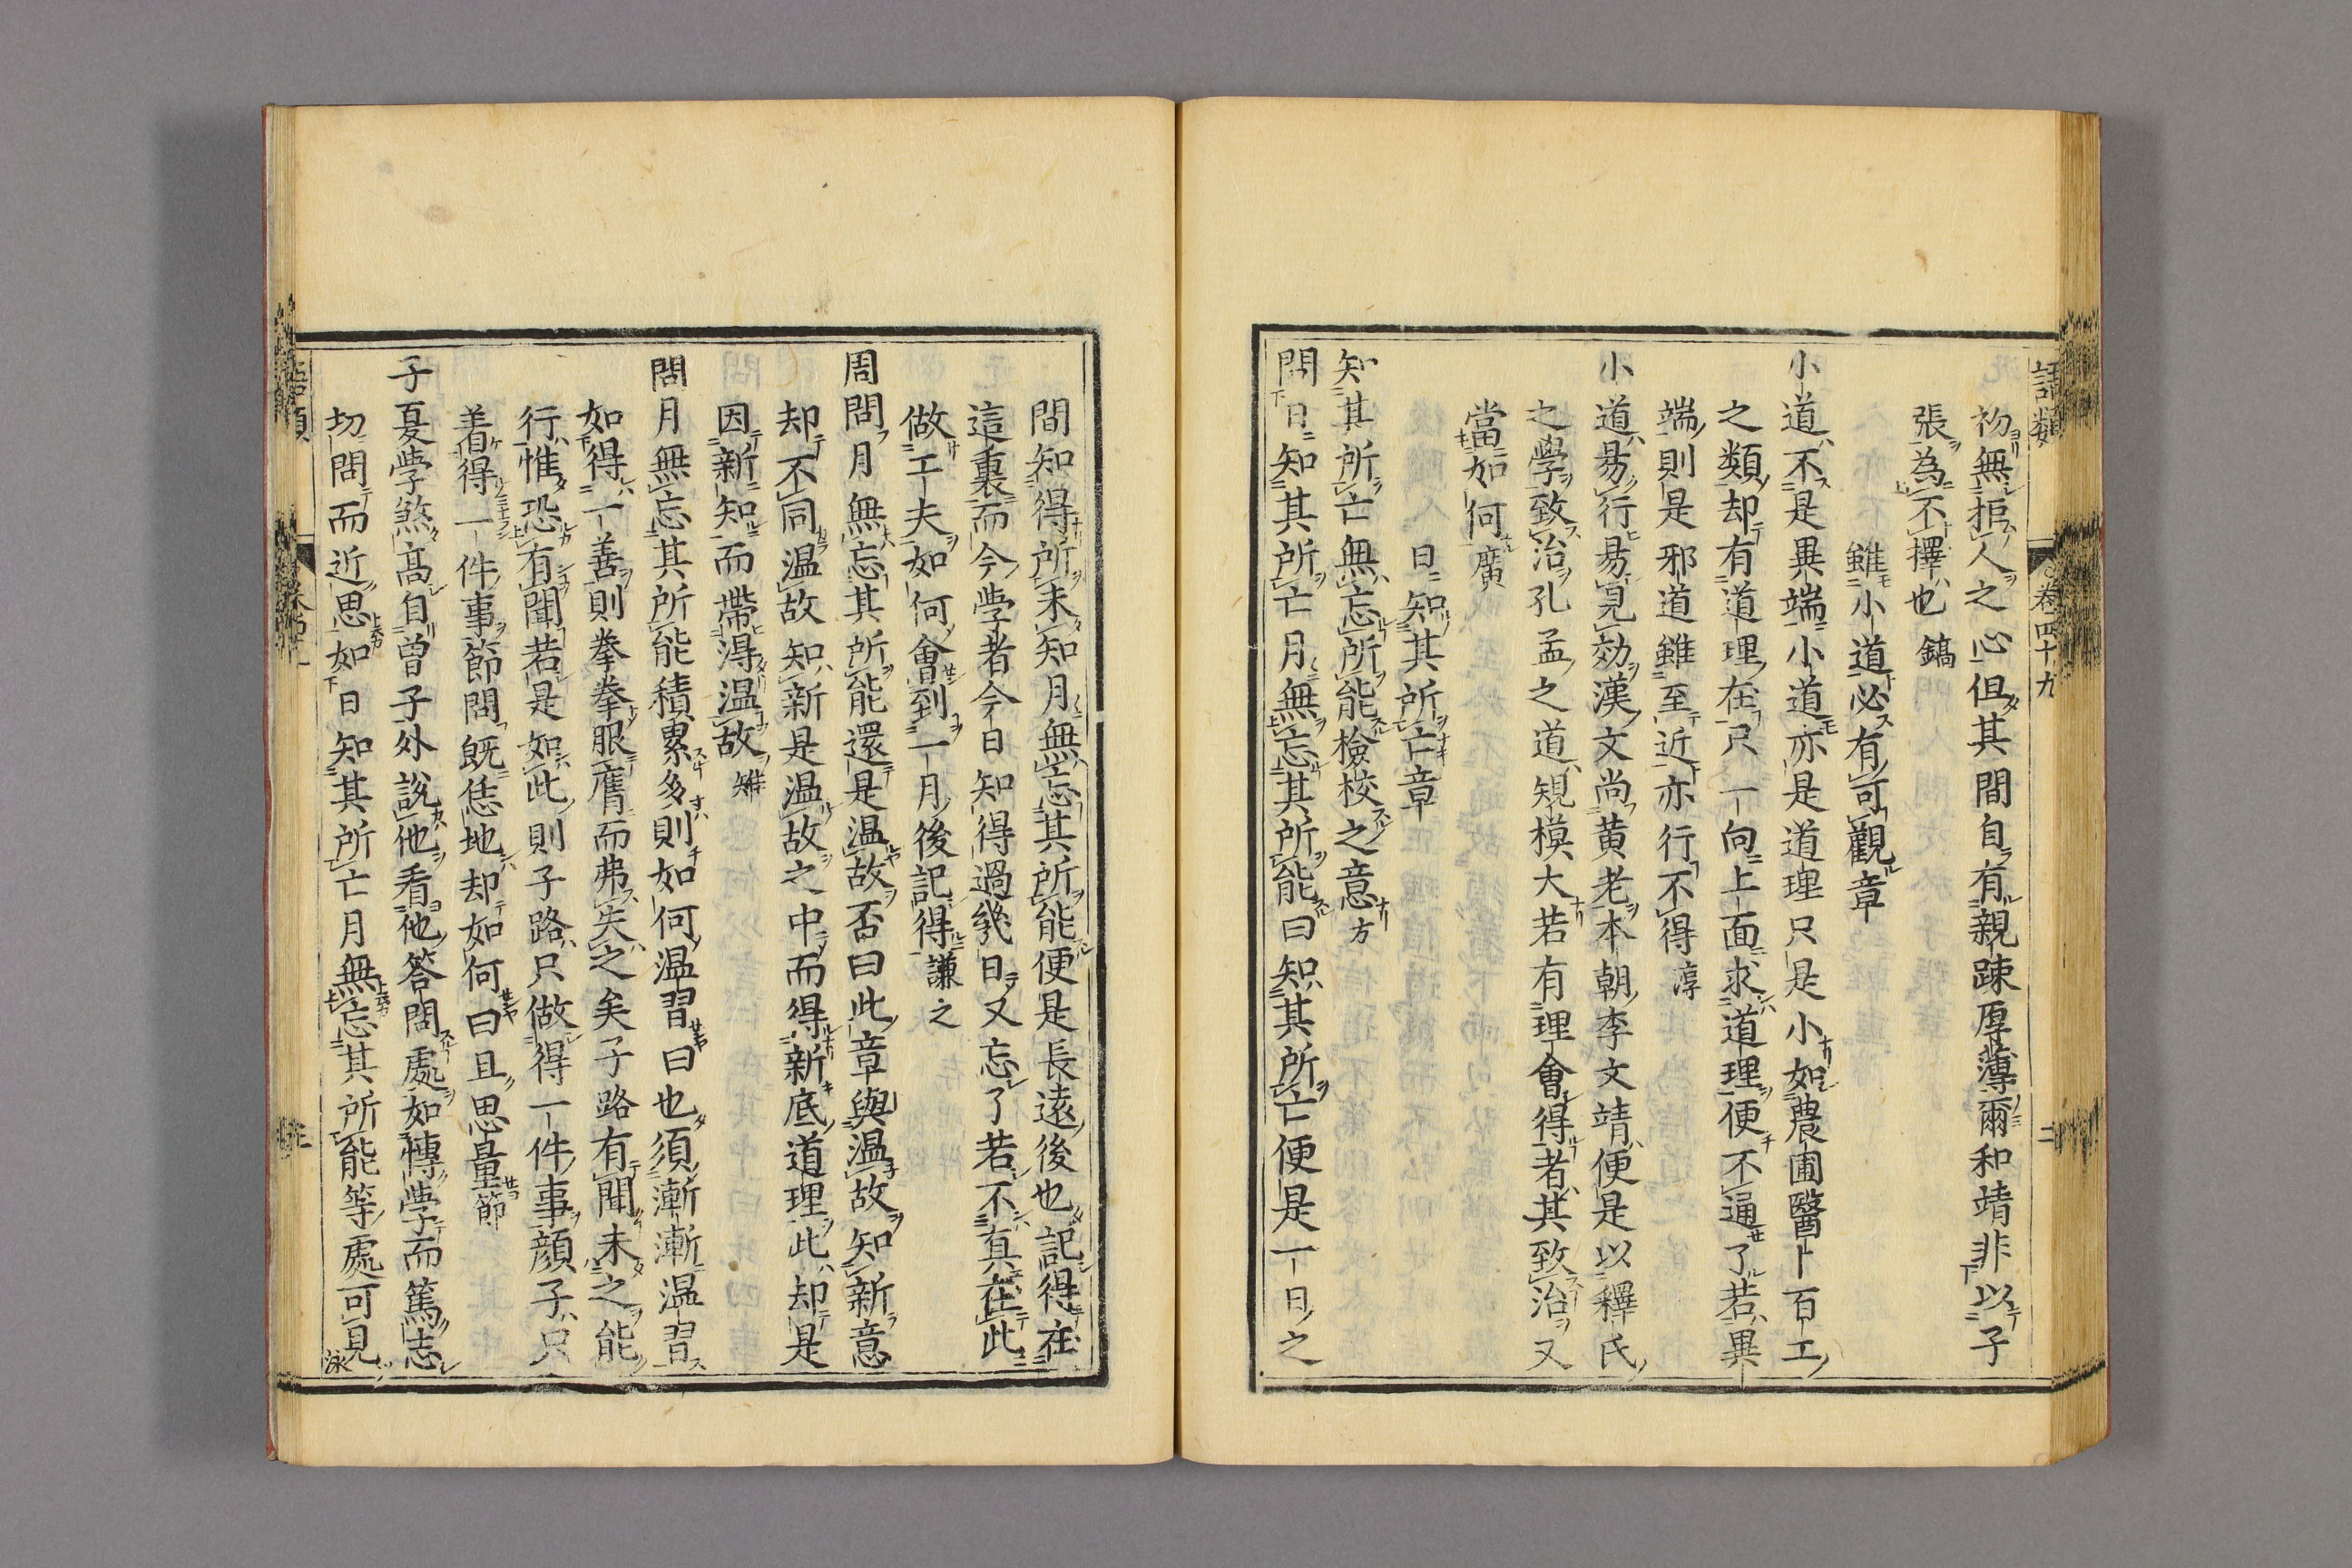 語類 卷四十九 二
初無拒人之心但其間自有親疎厚薄爾和靖非以子
張為不擇也 鎬
雖小道必有可觀章
小道不是異端小道亦是道理只是小如農圃醫卜百工
之類却有道理在只一向上面求道理便不通了若異
端則是邪道雖至近亦行不得 淳
小道易行易見効漢文尚黄老本朝李文靖便是以釋氏
之學致治孔孟之道規模大若有理會得者其致治又
當如何 廣
日知其所亡章
知其所亡無忘所能檢校之意 方
問日知其所亡月無忘其所能曰知其所亡便是一日之
間知得所未知月無忘其所能便是長遠後也記得在
這裏而今學者今日知得過幾日又忘了若不真在此
做工夫如何會到一月後記得 謙之
周問月無忘其所能還是温故否曰此章與温故知新意
却不同温故知新是温故之中而得新底道理此却是
因新知而帶得温故 雉
問月無忘其所能積累多則如何温習曰也須漸漸温習
如得一善則拳拳服膺而弗失之矣子路有聞未之能
行惟恐有聞若是如此則子路只做得一件事顔子只
着得一件事節問既恁地却如何曰且思量 節
子夏學煞高自曾子外說他看他答問處如博學而篤志
切問而近思如日知其所亡月無忘其所能等處可見
泳